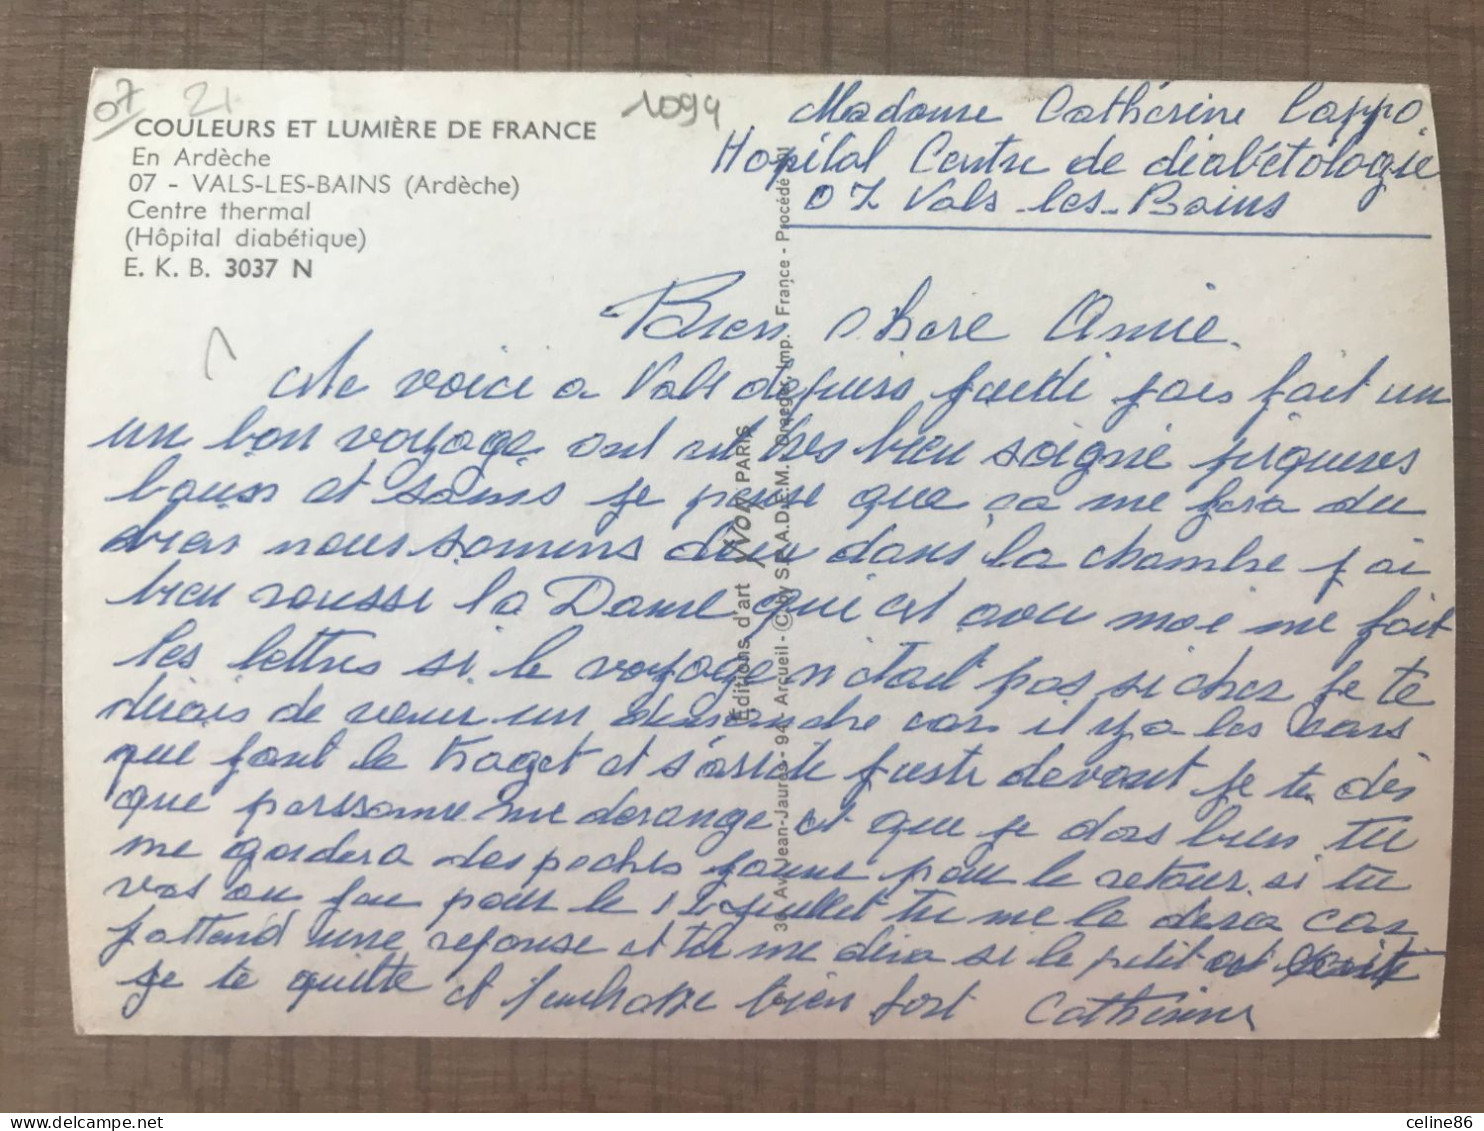 07 21
1094
COULEURS ET LUMIÈRE DE FRANCE
En Ardèche
07 - VALS-LES-BAINS (Ardèche)
Centre thermal
(Hôpital diabétique)
E. K. B. 3037 N
Madame Cathérine Cappo.
Hopital Centre de diabétologie
07 Vals-les-Bains
Bien chere Amie.
Me voici a Vals depuis jeudi jais fait un
un bon voyage ont est tres bien soigné piqures
bains et soins je pense que ça me fera du
bien nous somms deux dans la chambre j'ai
bien roussi la Dame qui est avec moi me fait
les lettres si le voyage n'etait pas si cher je te
dirais de venir un dimanche car il y a les cars
que font le traget et s'arrete juste devant je te dis
que personne me derange et que je dors bien tu
me gardera des peches jaune pour le retour. si tu
vas au pour le 14 juillet tu me le dira car
j'attend une reponse et tu me dira si le petit at écrit
je te quitte et t'embrasse bien fort Cathérine
Éditions d'art YVON PARIS
Av. Jean-Jaurès - 94 Arcueil - © by S.P.A.D.E.M. Draeger, Imp. France - Procédé
celine86